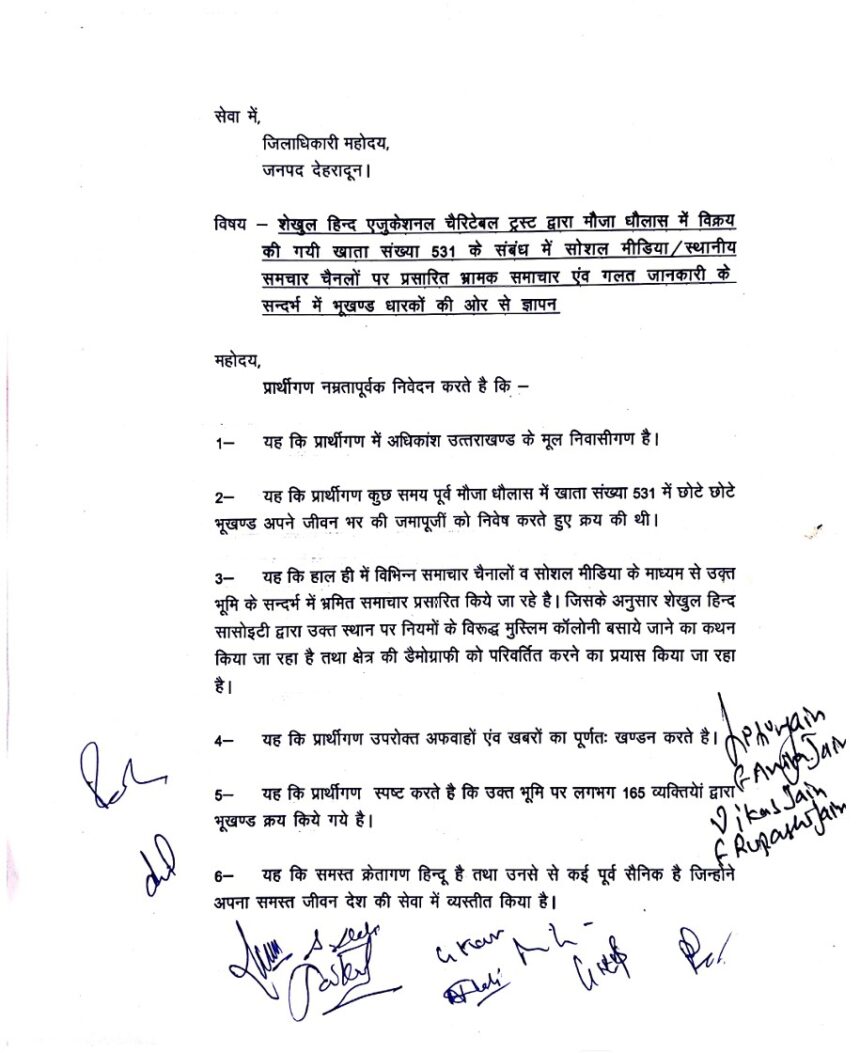 सेवा में,
जिलाधिकारी महोदय,
जनपद देहरादून।
विषय – शेखुल हिन्द एजुकेशनल चैरिटेबल ट्रस्ट द्वारा मौजा धौलास में विक्रय
की गयी खाता संख्या 531 के संबंध में सोशल मीडिया/स्थानीय
समचार चैनलों पर प्रसारित भ्रामक समाचार एंव गलत जानकारी के
सन्दर्भ में भूखण्ड धारकों की ओर से ज्ञापन
महोदय,
प्रार्थीगण नम्रतापूर्वक निवेदन करते है कि –
1– यह कि प्रार्थीगण में अधिकांश उत्तराखण्ड के मूल निवासीगण है।
2– यह कि प्रार्थीगण कुछ समय पूर्व मौजा धौलास में खाता संख्या 531 में छोटे छोटे
भूखण्ड अपने जीवन भर की जमापूजीं को निवेष करते हुए क्रय की थी।
3– यह कि हाल ही में विभिन्न समाचार चैनालों व सोशल मीडिया के माध्यम से उक्त
भूमि के सन्दर्भ में भ्रमित समाचार प्रसारित किये जा रहे है। जिसके अनुसार शेखुल हिन्द
सासोइटी द्वारा उक्त स्थान पर नियमों के विरूद्ध मुस्लिम कॉलोनी बसाये जाने का कथन
किया जा रहा है तथा क्षेत्र की डैमोग्राफी को परिवर्तित करने का प्रयास किया जा रहा
है।
4– यह कि प्रार्थीगण उपरोक्त अफवाहों एंव खबरों का पूर्णतः खण्डन करते है।
5– यह कि प्रार्थीगण स्पष्ट करते है कि उक्त भूमि पर लगभग 165 व्यक्तियेां द्वारा
भूखण्ड क्रय किये गये है।
Vikas Jain
6– यह कि समस्त क्रेतागण हिन्दू है तथा उनसे से कई पूर्व सैनिक है जिन्होने
अपना समस्त जीवन देश की सेवा में व्यस्तीत किया है।